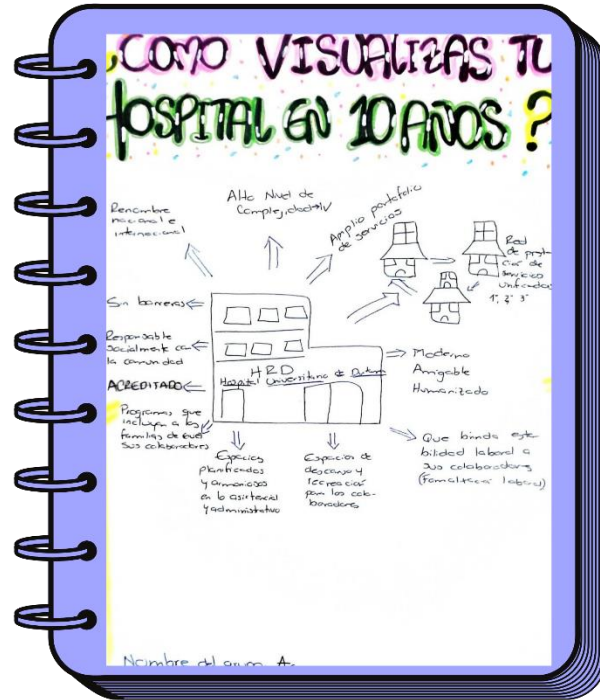 ¿COMO VISUALIZAS TU
HOSPITAL EN 10 AÑOS?
Renombre
nacional e
internacional
Alto Nivel de
Complejidad IV
Amplio portafolio
de servicios
Red
de presta
ción de
servicios
Unificada
1°, 2° 3°
Sin barreras
Responsable
socialmente con
la comunidad
ACREDITADO
Programas que
incluyan a las
familias de
sus colaboradores
HRD
Hospital Universitario de
Moderno
Amigable
Humanizado
Espacios
planificados
y armoniosos
en lo asistencial
y administrativo
Espacios de
descanso y
recreación
para los cola-
boradores
Que brinda esta
bilidad laboral a
sus colaboradores
(Formalización laboral)
Nombre del grupo A.